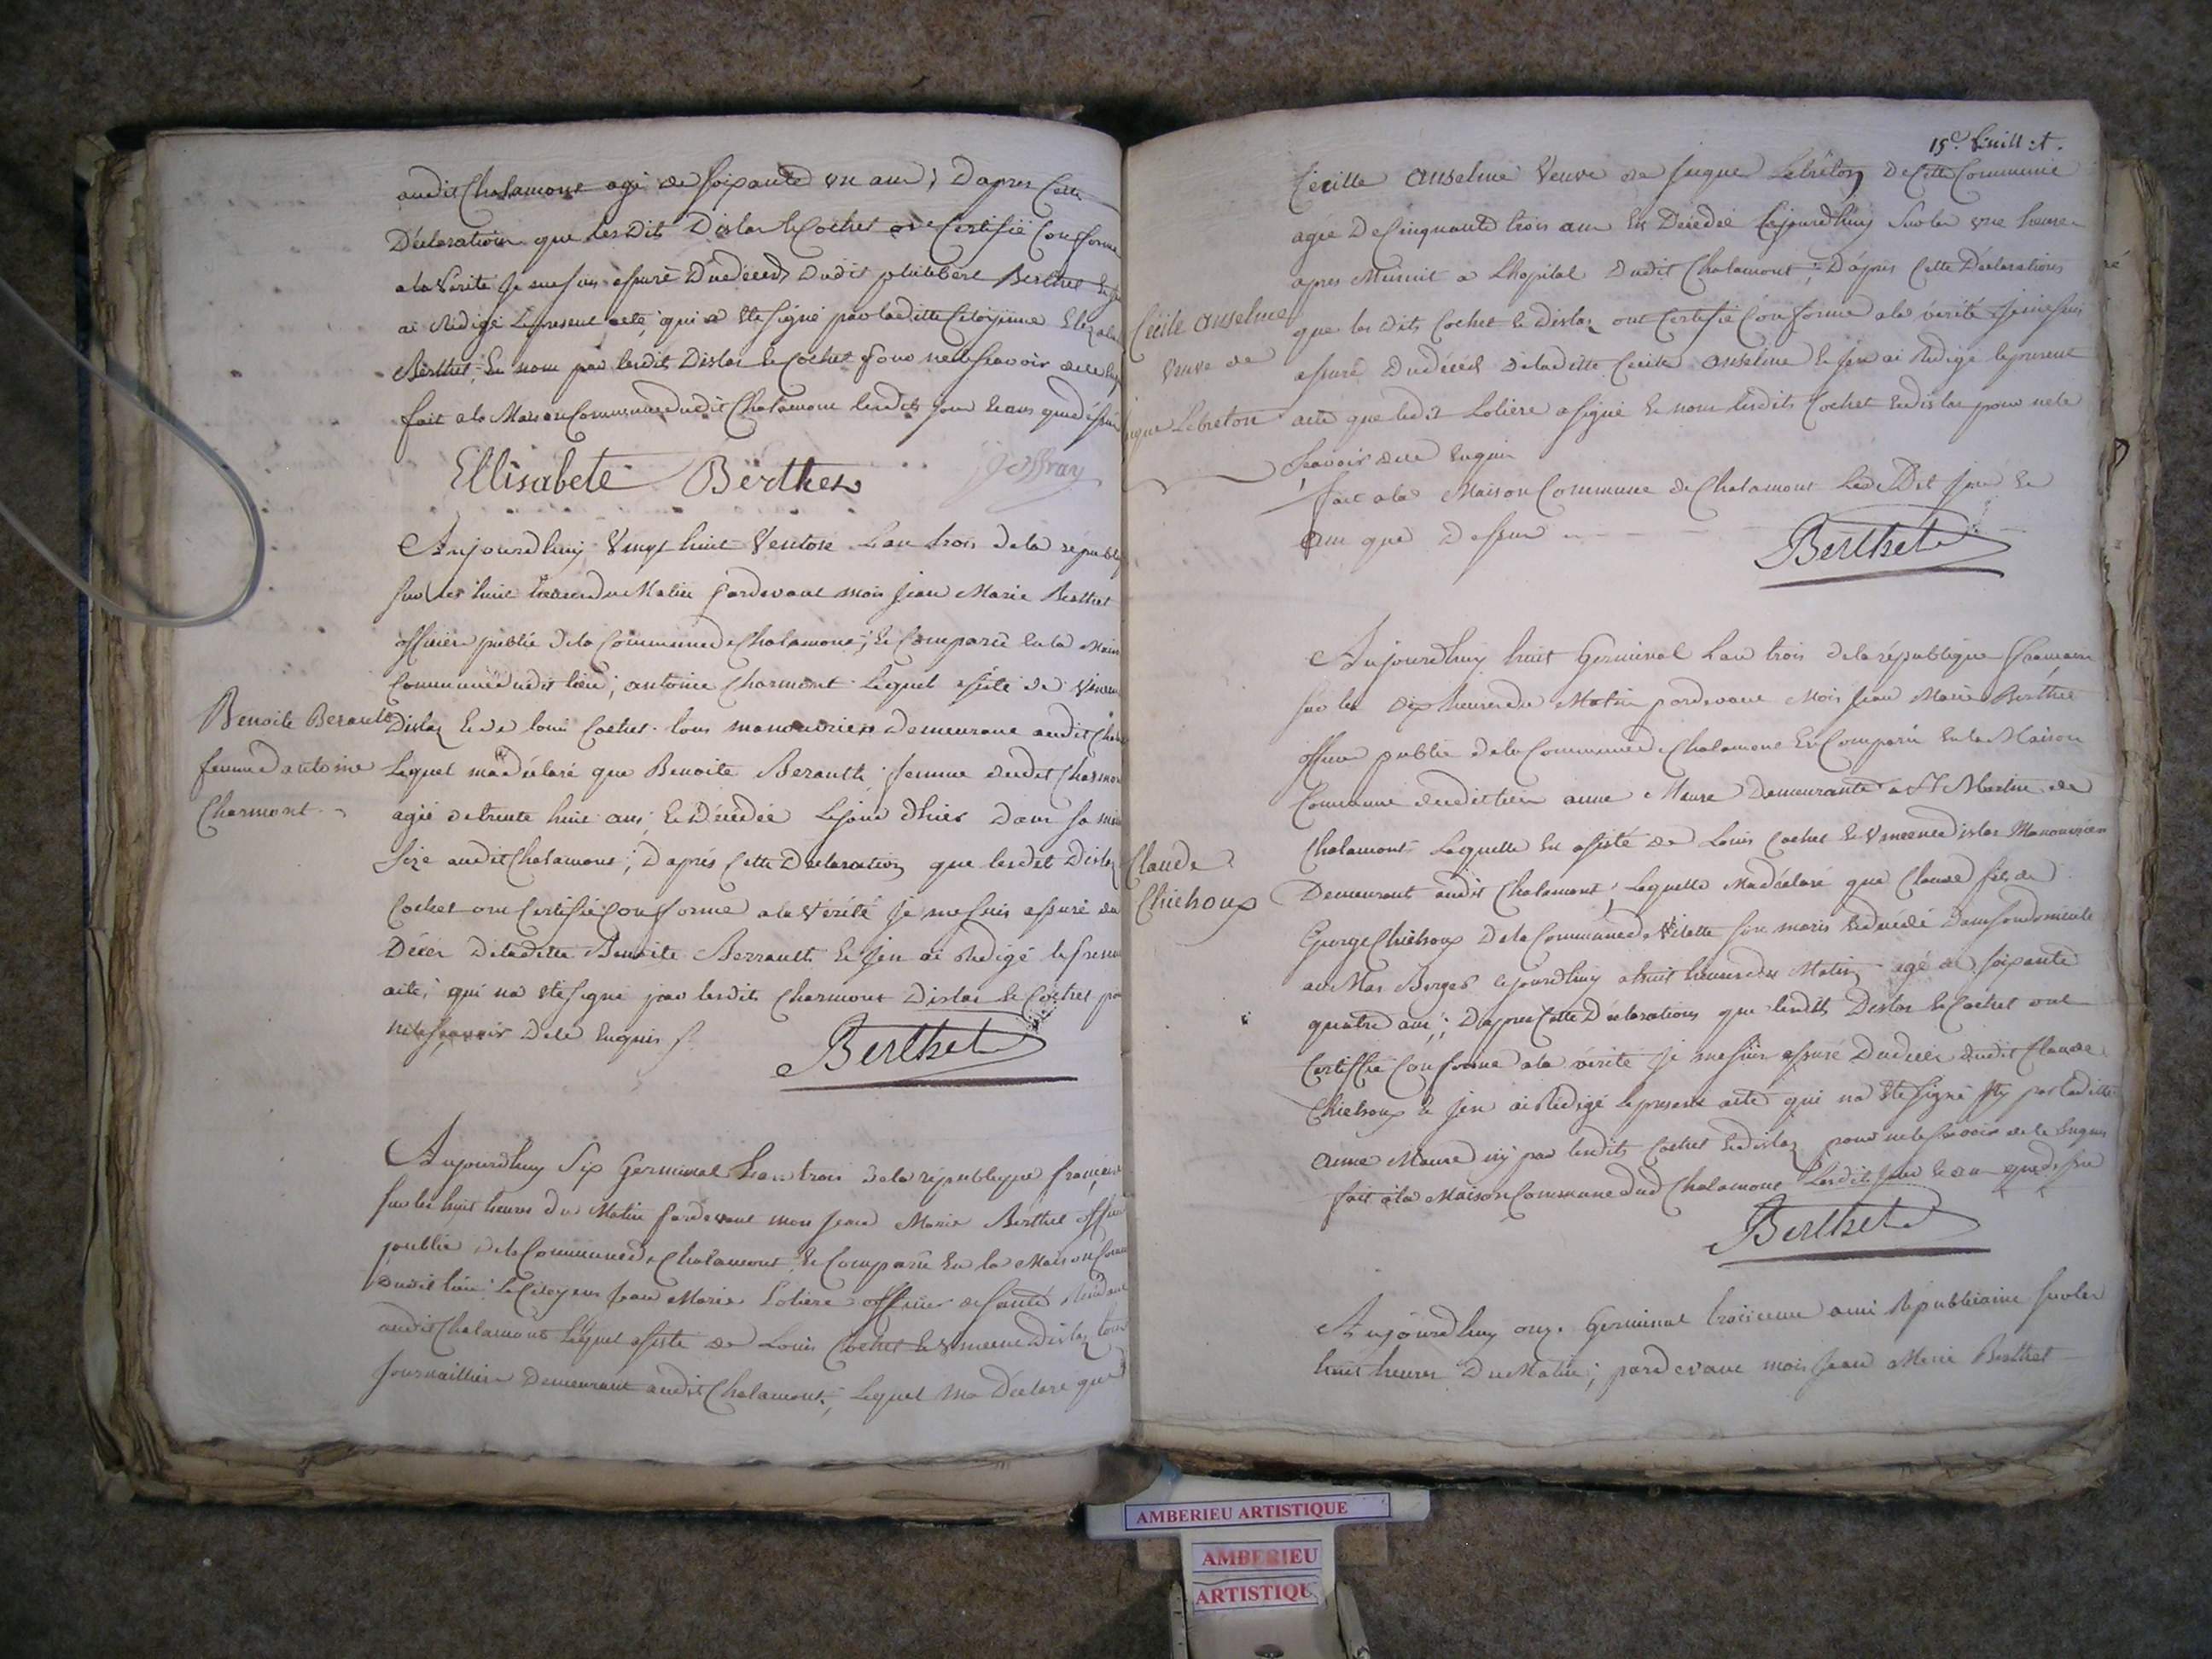 audit Chalamont agé de soixante un ans; Dapres Cette
Déclaration que lesdits Dislaz & Cochet ont Certifié Conforme
a la Vérité Je me suis assuré Du décéd Dudit philibert Berthet
ai Rédigé Le present acte, qui a Ete signé par laditte Citoyenne
Berthet & non par lesdit Dislaz & Cochet pour ne le scavoir de ce
fait a la Maison Commune dudit Chalamont lesdits jour & ans que dessus
Ellisabete Berthet Joffray
Aujourdhuy Vingt huit Ventose Lan trois de la républ
sur les huit heures du Matin pardevant moi Jean Marie Berthet
officier public de la Commune de Chalamont, est Comparu en la Maison
Commune dudit lieu, antoine Charmont Lequel assisté de Vincen
Benoite Berault
femme dantoine
Charmont
Dislaz & de louis Cochet tous manouvriers Demeurant audit Chala
Lequel ma déclaré que Benoite Berault femme dudit Charmon
agée de trente huit ans, est Décédée Le jour dhier Dans sa
size audit Chalamont; D'aprés Cette Déclaration que lesdit Dislaz
Cochet ont Certifié Conforme a la Vérité Je me suis assuré du
Décés De laditte Benoite Berrault & Jen ai Redigé le present
acte, qui na Ete signé par lesdits Charmont Dislaz & Cochet po
ne le scavoir De ce Enquis
Berthet
Aujourdhuy Six Germinal Lan trois de la république française
sur les huit heures du Matin pardevant moi Jean Marie Berthet officier
public de la Commune de Chalamont est Comparu En la Maison Commu
dudit lieu Le Citoyen Jean Marie Loliere officier de santé Résidant
audit Chalamont Lequel assisté de Louis Cochet & Vincent Dislaz tous
Journailliers Demeurant audit Chalamont, Lequel ma Déclaré que
15e feuill:t.
Cecille Anselme Veuve de Lebreton De Cette Commune
agée De Cinquante trois ans Est Décédée Cejourdhuy Sur les une heure
apres Minuit a Lhopital Dudit Chalamont; D'apres Cette Déclaration
Cécile Anselme
Veuve de
Lebreton
que les dits Cochet & Dislaz ont Certifié Conforme a la vérité Je me suis
assuré Du décéd de laditte Cecile Anselme & Jen ai Redigé le present
acte que ledit Loliere a signé & non lesdits Cochet & Dislaz pour ne le
scavoir de ce Enquis
fait a la Maison Commune de Chalamont Lesdit jour &
an que Dessus
Berthet
Aujourdhuy huit Germinal Lan trois de la république francaise
sur les dix heures du Matin pardevant Moi Jean Marie Berthet
officier public de la Commune de Chalamont Est Comparu En la Maison
Commune dudit lieu anne Maure Demeurante a St Martin de
Chalamont Laquelle Est assisté de Louis Cochet & Vincent Dislaz Manouvriers
Claude
Chiehoup
Demeurant audit Chalamont; Laquelle Ma déclaré que Claude fils de
George Chiehoup De la Commune de Vilette son maris Est décédé Dans son domicile
au Mas Berger Cejourdhuy a huit heures du Matin agé de soixante
quatre ans; D'apres Cette Déclaration que lesdits Dislaz & Cochet ont
Certiffié Conforme a la vérité Je me suis assuré Du décés dudit Claude
Chiehoup & Jen ai Rédigé le present acte qui na Ete signé ny par laditte
anne Maure ny par lesdits Cochet & Dislaz pour ne le scavoir de ce Enquis
fait a la Maison Commune dud Chalamont Lesdits jour & an que dessus
Berthet
Aujourdhuy onze Germinal troisieme anné Républicaine sur les
huit heures Du Matin; pardevant moi Jean Marie Berthet
AMBERIEU ARTISTIQUE
AMBERIEU
ARTISTIQUE